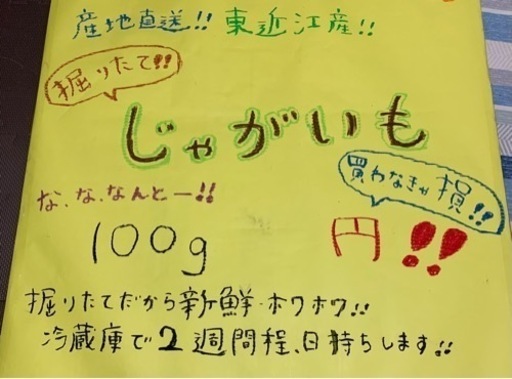 産地直送!! 東近江産!!
掘りたて!!
じゃがいも
買わなきゃ損!!
な、な、なんとー!!
100g 円!!
掘りたてだから新鮮・ホワホワ!!
冷蔵庫で2週間程、日持ちします!!